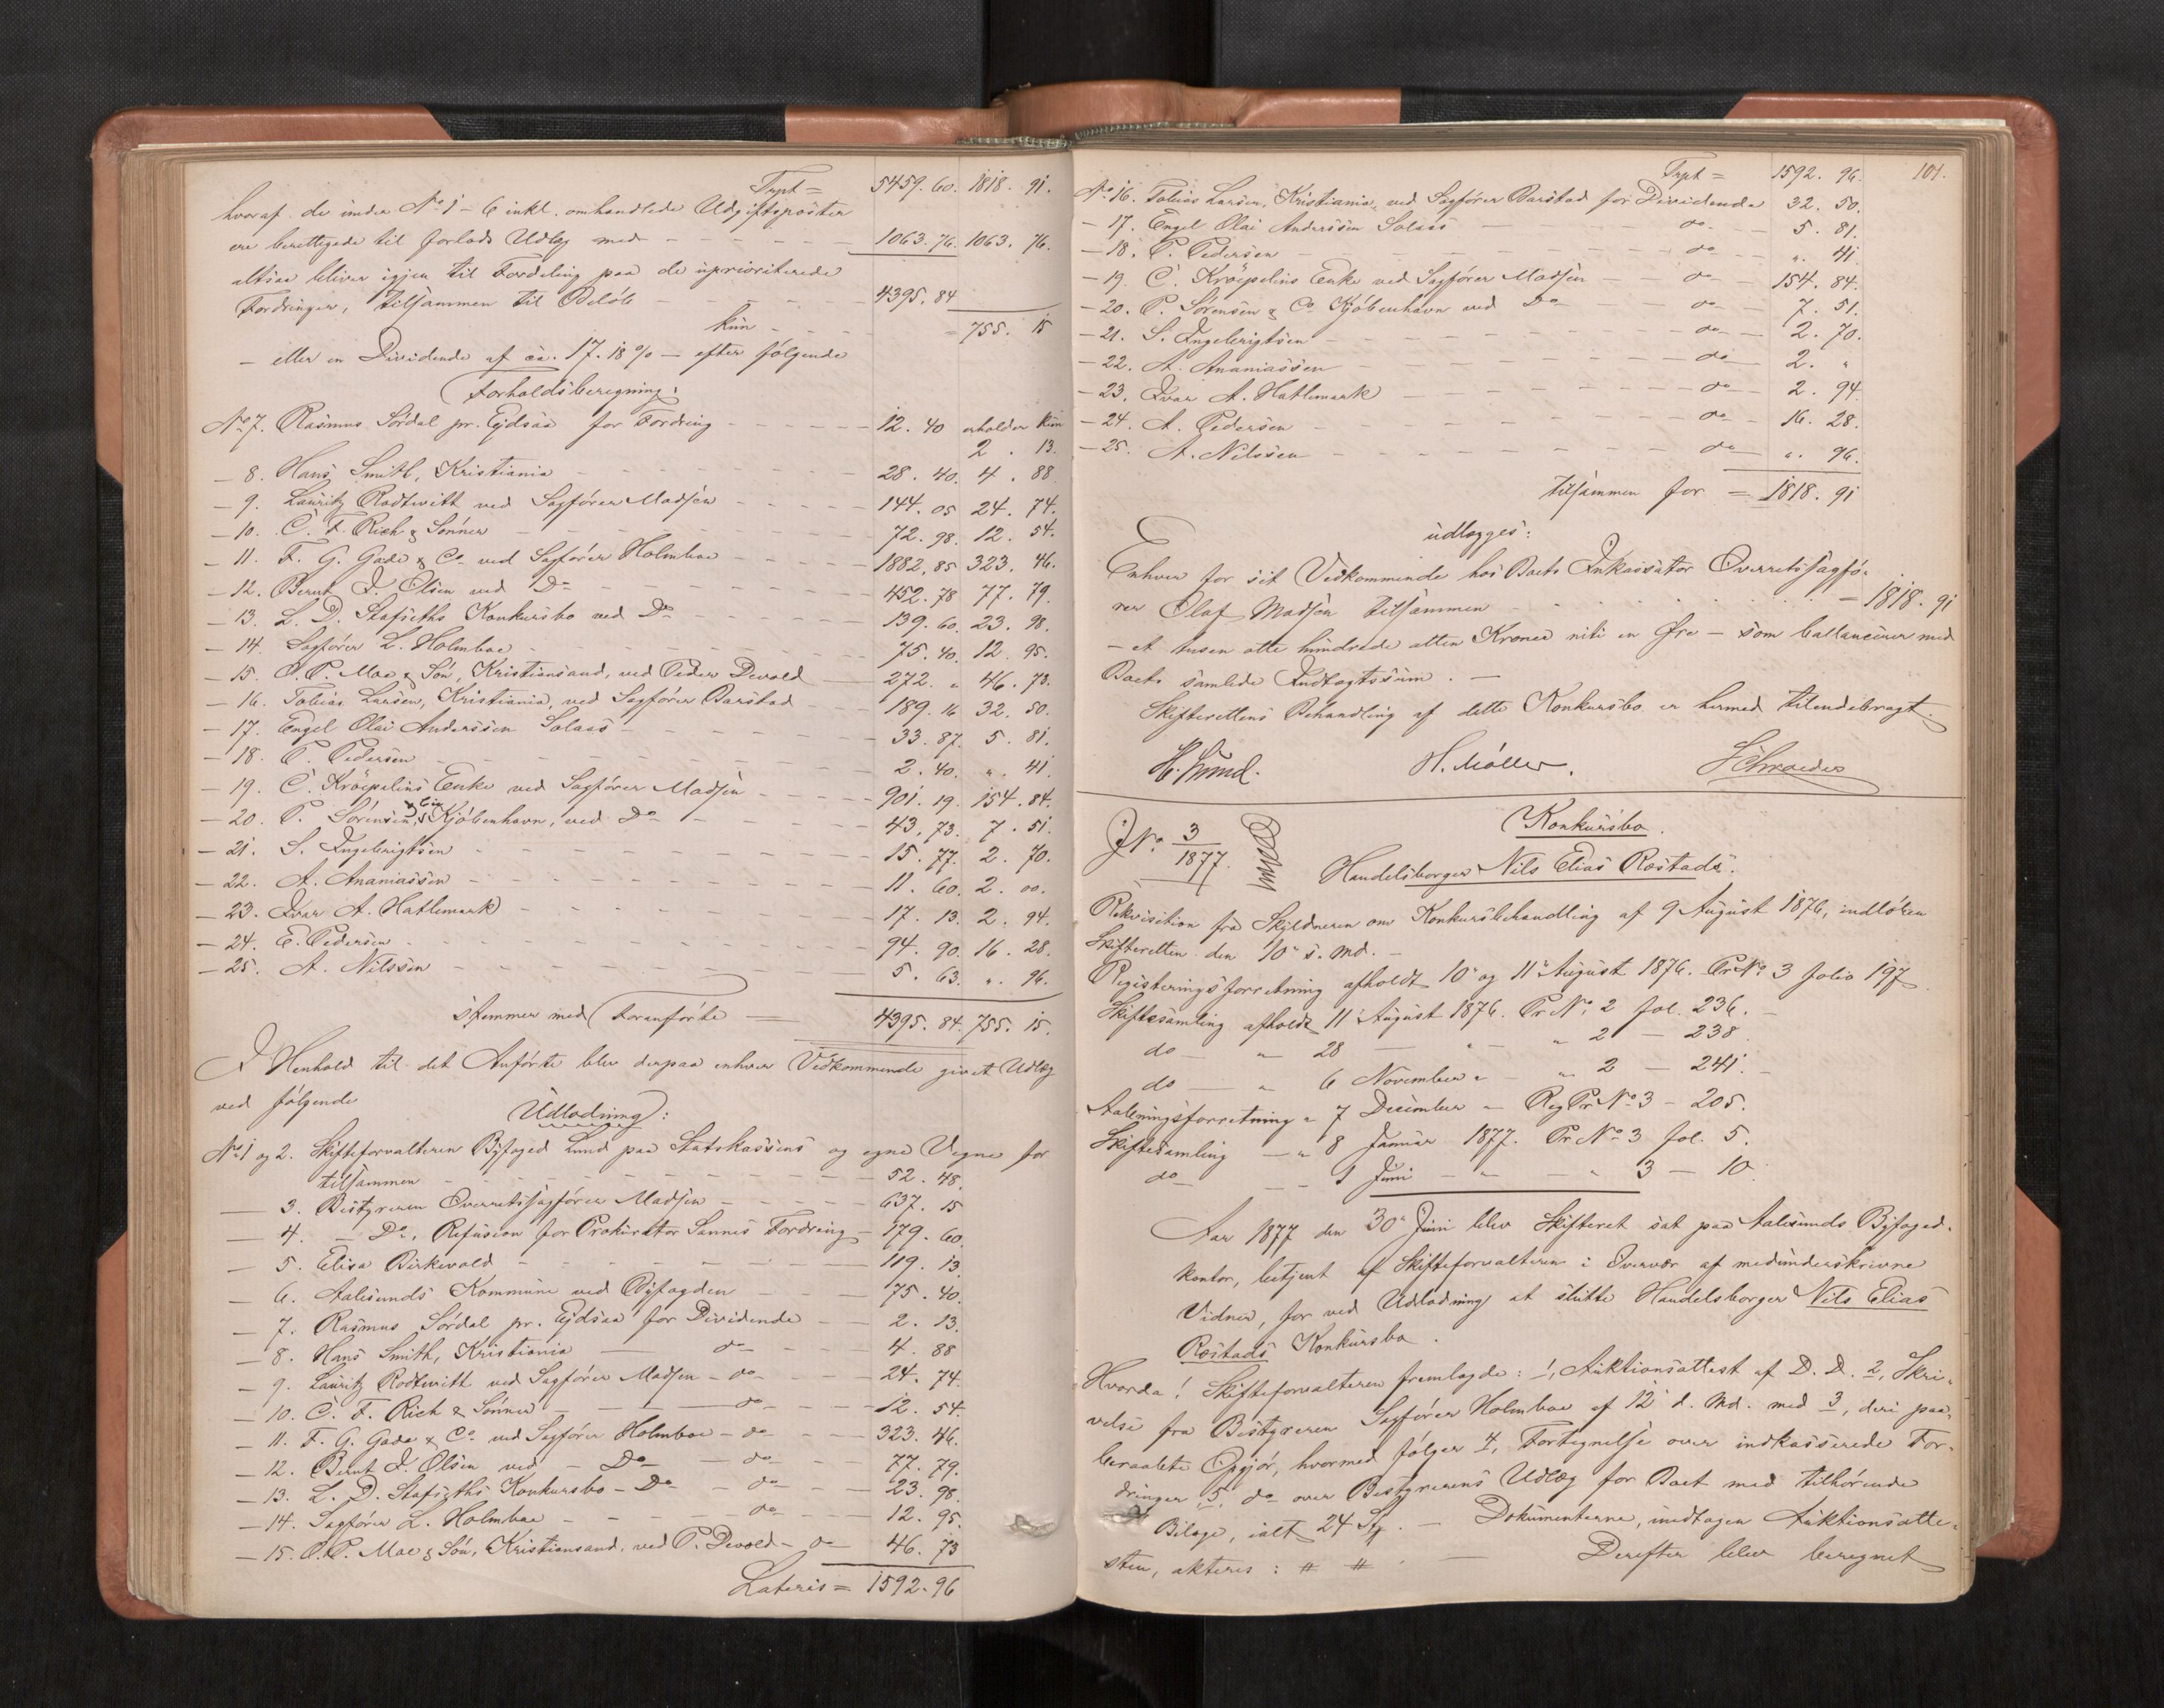 Trpt = 5459. 60. 1818. 91.
hvoraf de under No 1 – 6 inkl. omhandlede Udgiftsposter
ere berettigede til forlods Udlæg med 1063. 76. 1063. 76.
altsaa bliver igjen til Fordeling paa de uprioriterede
Fordringer, tilsammen til Beløb 4395. 84
kun = 755. 15
– eller en Dividende af ca. 17.18 % – efter følgende
Forholdsberegning:
No 7. Rasmus Sørdal pr. Ejdsaa for Fordring 12. 40 erholder kun
2. 13.
– 8. Hans Smith, Kristiania 28. 40. 4. 88
– 9. Lauritz Rodtwitt ved Sagfører Madsen 144. 05 24. 74.
– 10. C. F. Rich & Sønner 72. 98. 12. 54.
– 11. F. G. Gade & Co ved Sagfører Holmboe 1882, 85 323. 46.
– 12. Bernt J. Olsen ved Do 452. 78 77. 79.
– 13. L. D. Stafseths Konkursbo ved Do 139. 60. 23. 98.
– 14. Sagfører L. Holmboe 75. 40. 12. 95.
– 15. O. P. Moe & Søn, Kristiansand, ved Peder Devold 272. " 46. 73.
– 16. Tobias Larsen, Kristiania, ved Sagfører Barstad 189. 16 32. 50.
– 17. Engel Olai Anderssen Solaas 33. 87. 5. 81.
– 18. P. Pedersen 2. 40. ". 41.
– 19. C. Kröepelins Enke ved Sagfører Madsen 901. 19. 154. 84.
– 20. P. Sørensen & Co, Kjøbenhavn, ved Do 43. 73. 7. 51.
– 21. S. Ingebrigtsen 15. 77. 2. 70.
– 22. A. Ananiassen 11. 60. 2. 00.
– 23. Ivar A. Hatlemark 17. 13. 2. 94.
– 24. E. Pedersen 94. 90. 16. 28.
– 25. A. Nilssen 5. 63. ". 96.
stemmer med Foranførte 4395. 84. 755. 15.
I Henhold til det Anførte blev derpaa enhver Vedkommende givet Udlæg
ved følgende
Udlodning:
No 1 og 2. Skifteforvalteren Byfoged Lund paa Statskassens og egne Vegne for
tilsammen 52. 48.
– 3. Bestyreren Overretssagfører Madsen 637. 15
– 4. – Do, Refusion for Prokurator Sannes Fordring 179. 60.
– 5. Elisa Birkevold 119. 13.
– 6. Aalesunds Kommune ved Byfogden 75. 40.
– 7. Rasmus Sørdal pr. Ejdsaa for Dividende 2. 13.
– 8. Hans Smith, Kristiania do 4. 88
– 9. Lauritz Rodtwitt ved Sagfører Madsen – do 24. 74.
– 10. C. F. Rich & Sønner do 12. 54.
– 11. F. G. Gade & Co ved Sagfører Holmboe – do 323. 46.
– 12. Bernt J. Olsen ved – Do do 77. 79.
– 13. L. D. Stafseths Konkursbo – Do – do 23. 98.
– 14. Sagfører L. Holmboe do 12. 95.
– 15. O. P. Moe & Søn, Kristiansand, ved P. Devold – do 46. 73
Lateris = 1592. 96
101.
Trpt = 1592. 96.
No 16. Tobias Larsen, Kristiania, ved Sagfører Barstad for Dividende 32. 50.
– 17. Engel Olai Anderssen Solaas do 5. 81.
– 18. P. Pedersen do ". 41
– 19. C. Kröepelins Enke ved Sagfører Madsen – do 154. 84.
– 20. P. Sørensen & Co Kjøbenhavn ved Do do 7. 51.
– 21. S. Ingebrigtsen do 2. 70.
– 22. A. Ananiassen do 2. "
– 23. Ivar A. Hatlemark do 2. 94.
– 24. A. Pedersen do 16. 28.
– 25. A. Nilssen do ". 96.
tilsammen for = 1818. 91
udlægges:
Enhver for sit Vedkommende hos Boets Inkassator Overretssagfø-
rer Olaf Madsen tilsammen = 1818. 91
– et tusen otte hundrede atten Kroner niti en Øre – som ballancerer med
Boets samlede Indtægtssum. –
Skifterettens Behandling af dette Konkursbo er hermed tilendebragt.
H. Lund. H. Møller. Schrøeder
Konkursbo.
JNo. 3/1877.
Handelsborger Nils Elias Røstads.
Rekvisition fra Skyldneren om Konkursbehandling af 9 August 1876, indløben
Skifteretten den 10" s. Md. –
Registreringsforretning afholdt 10" og 11" August 1876. Pr No 3 folio 197
Skiftesamling afholdt 11" August 1876. Pr No 2 fol. 236. –
do – " 28 – " – " 2 – 238
do – " 6 November " – " 2 – 241. –
Takningsforretning " 7 December – Reg Pr No 3 – 205.
Skiftesamling – " 8 Januar 1877. Pr No 3 fol. 5.
do – – 1 Juni – " – " 3 – 10.
Aar 1877 den 30" Juni blev Skifteret sat paa Aalesunds Byfoged-
kontor, betjent af Skifteforvalteren i Overvær af medunderskrevne
Vidner, for ved Udlodning at slutte Handelsborger Nils Elias
Røstads Konkursbo.
Hvorda! Skifteforvalteren fremlagde: 1, Auktionsattest af D. D. 2, Skri-
velse fra Bestyreren Sagfører Holmboe af 12" d. Md. med 3, deri paa-
beraabte Opgjør, hvormed følger 4, Fortegnelse over indkasserede For-
dringer, 5, do over Bestyrerens Udlæg for Boet med tilhørende
Bilage, ialt 24 St. – Dokumenterne, undtagen Auktionsatte-
sten, akteres: # # – Derefter blev beregnet